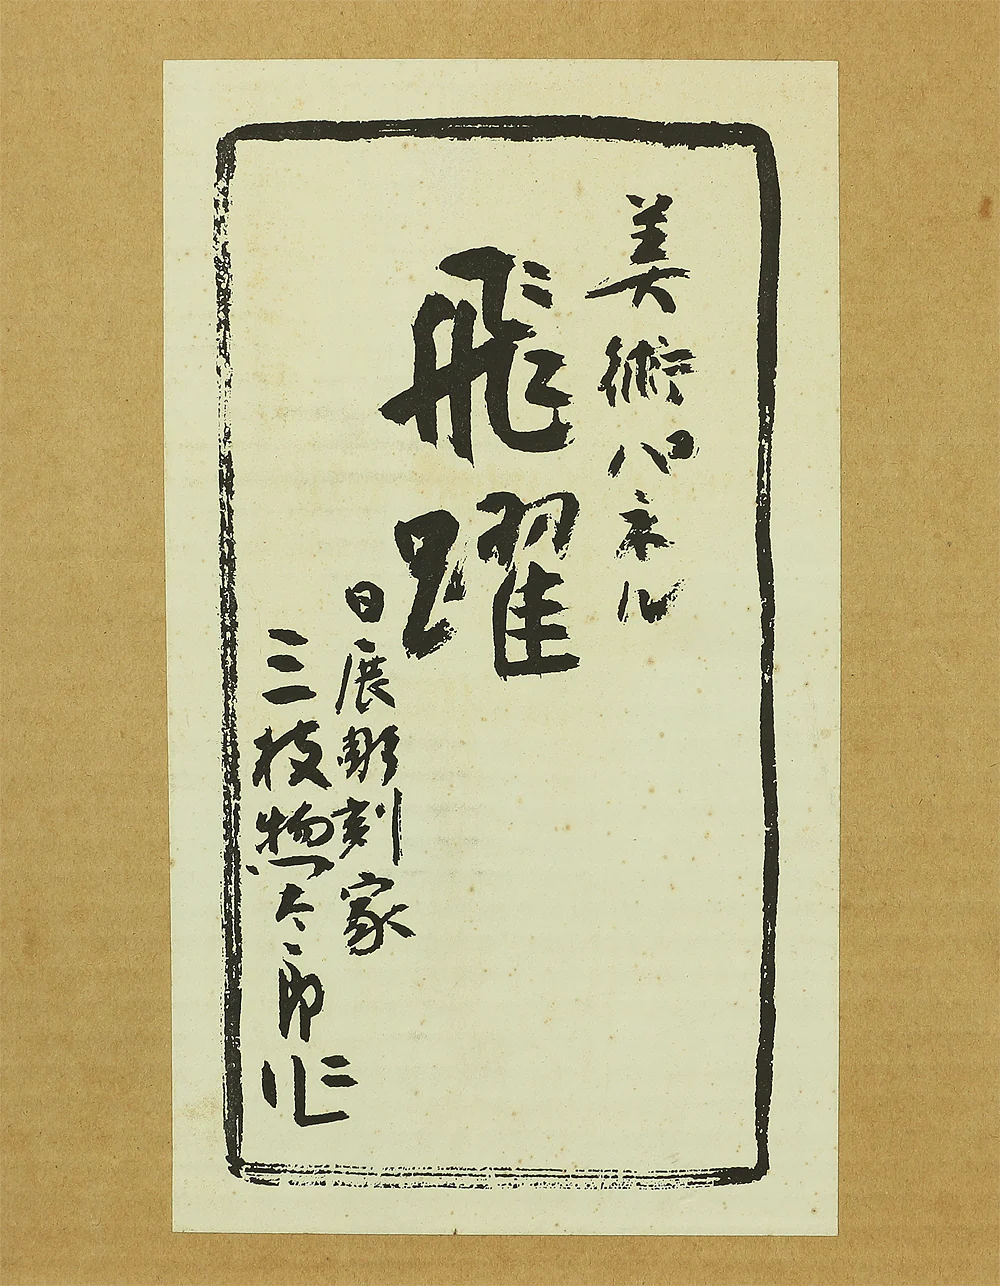 美術パネル
飛躍
日展彫刻家
三枝惣太郎作